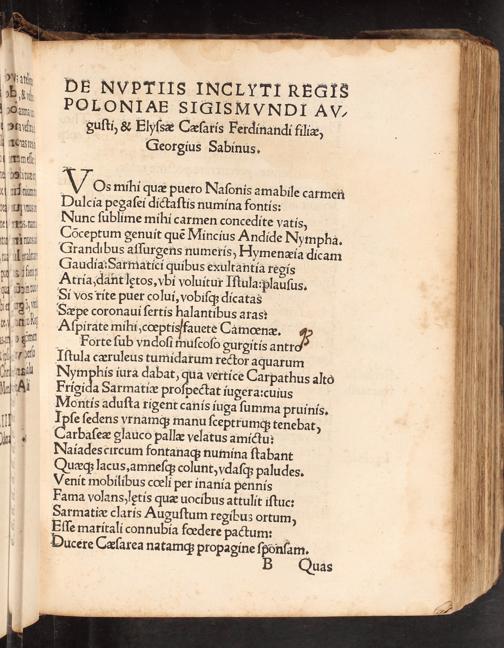 DE NVPTIIS INCLYTI REGIS
POLONIAE SIGISMVNDI AV,
gusti, & Elyssæ Cæsaris Ferdinandi filiæ,
Georgius Sabinus.
VOs mihi quæ puero Nasonis amabile carmen
Dulcia pegasei dictastis numina fontis:
Nunc sublime mihi carmen concedite vatis,
Cõceptum genuit quẽ Mincius Andide Nympha.
Grandibus assurgens numeris, Hymenæia dicam
Gaudia: Sarmatici quibus exultantia regis
Atria, dant lętos, vbi voluitur Istula: plausus.
Si vos rite puer colui, vobisqꝫ dicatas
Sæpe coronaui sertis halantibus aras:
Aspirate mihi, cœptis fauete Camœnæ.
Forte sub vndoso muscoso gurgitis antro
Istula cæruleus tumidarum rector aquarum
Nymphis iura dabat, qua vertice Carpathus alto
Frigida Sarmatiæ prospectat iugera: cuius
Montis adusta rigent canis iuga summa pruinis.
Ipse sedens vrnamqꝫ manu sceptrumqꝫ tenebat,
Carbaseæ glauco pallæ velatus amictu:
Naiades circum fontanaqꝫ numina stabant
Quæqꝫ lacus, amnesqꝫ colunt, vdasqꝫ paludes.
Venit mobilibus cœli per inania pennis
Fama volans, lętis quæ uocibus attulit istuc:
Sarmatiæ claris Augustum regibus ortum,
Esse maritali connubia fœdere pactum:
Ducere Cæsarea natamqꝫ propagine sponsam.
B Quas